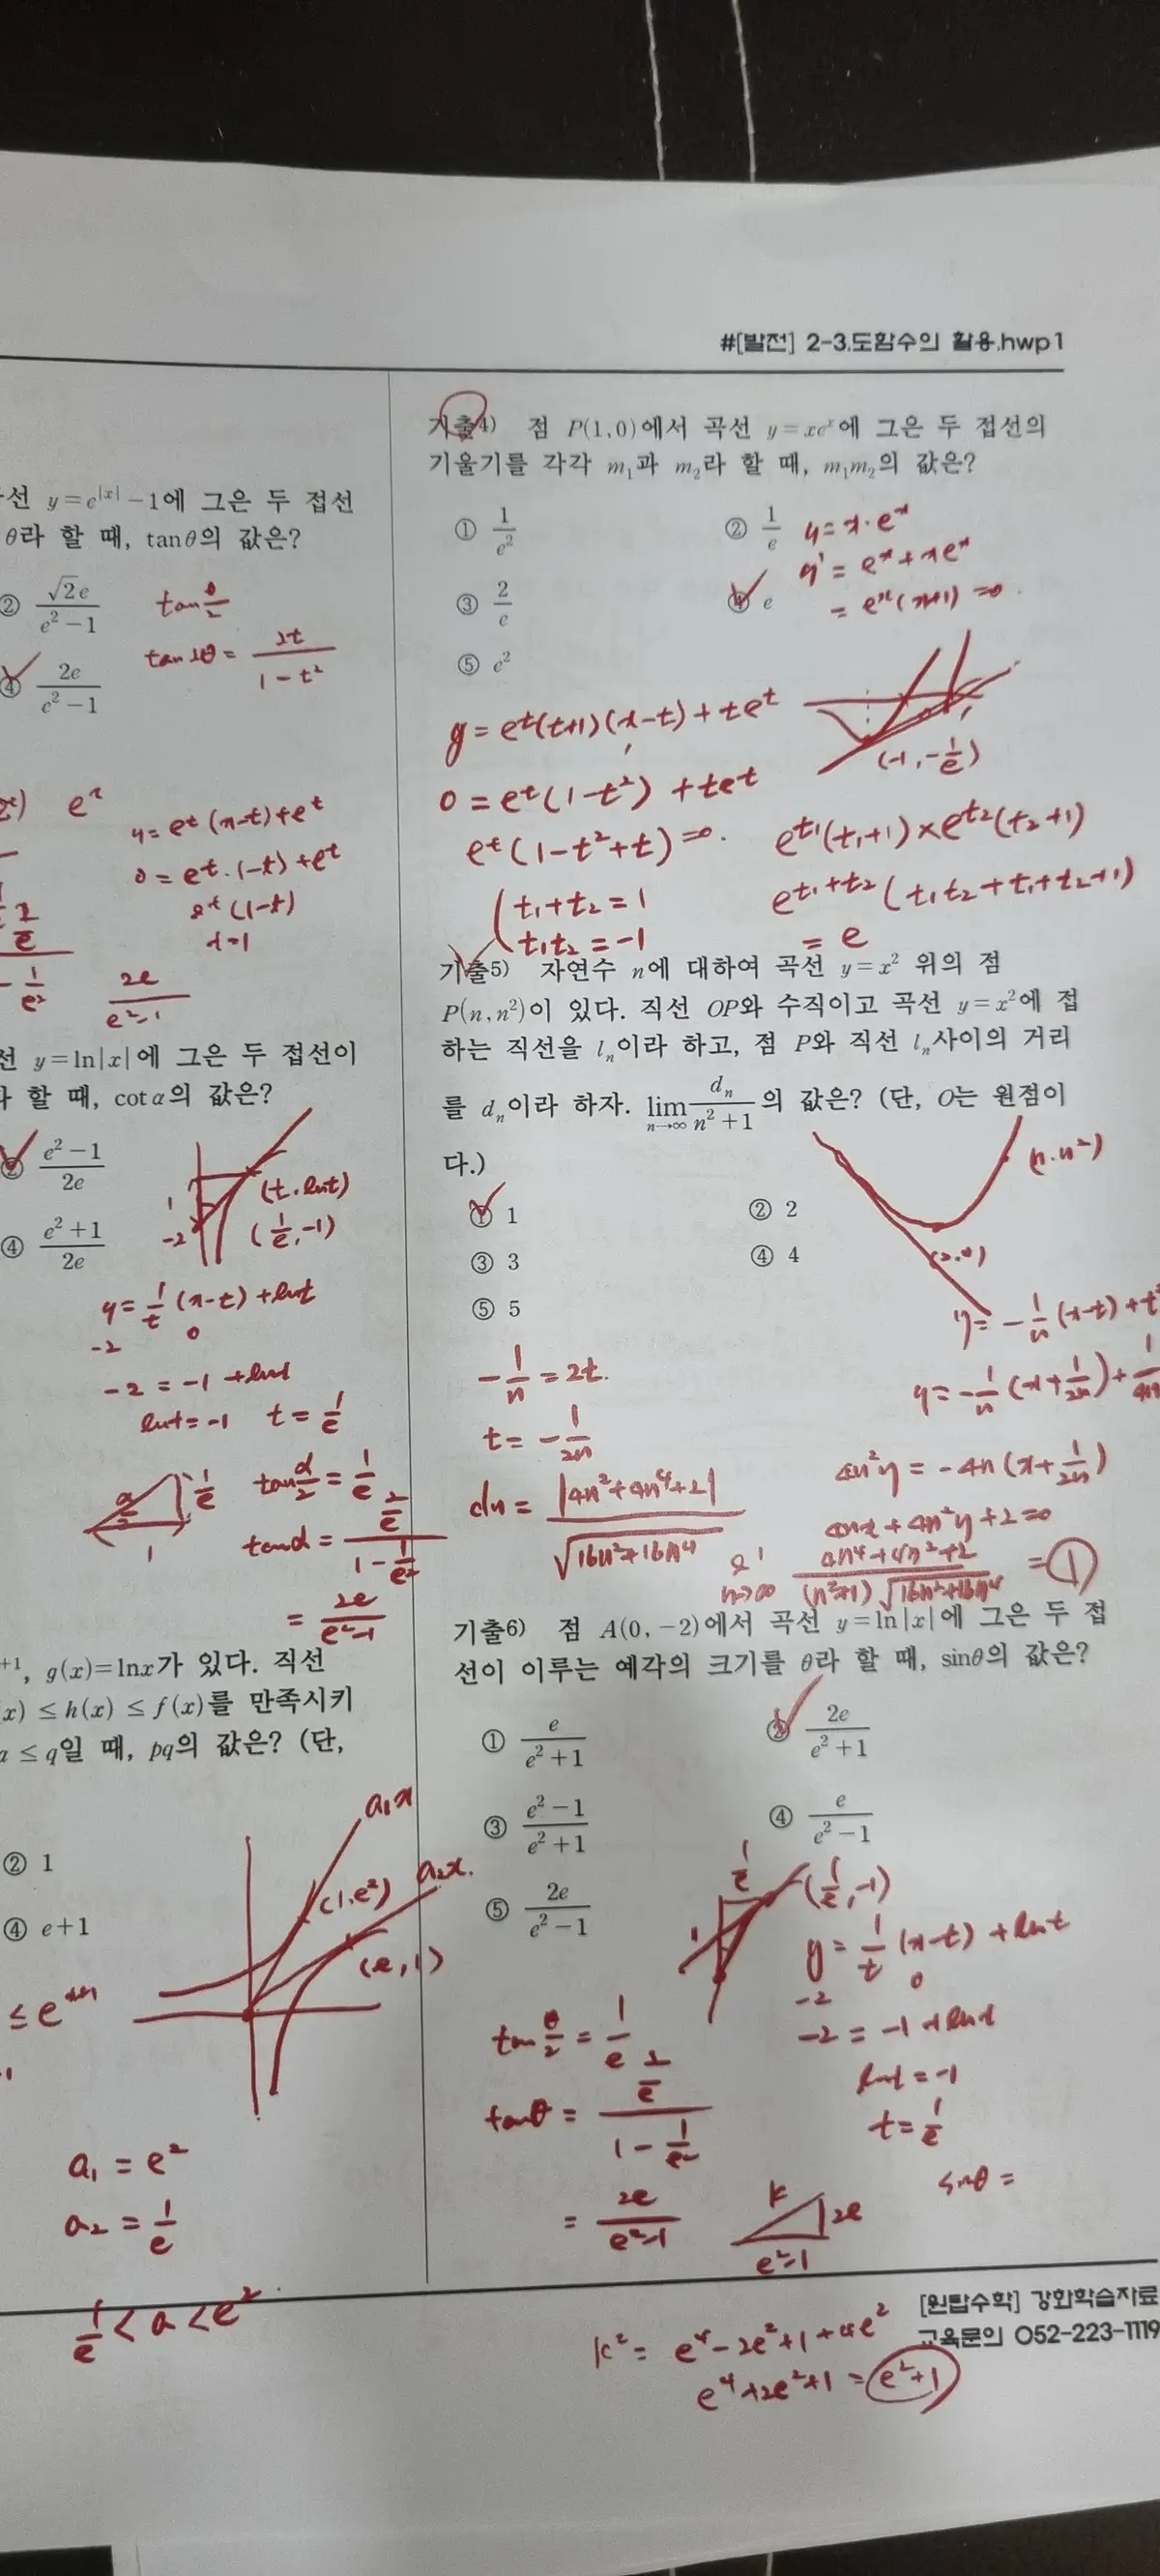 #[발전] 2-3.도함수의 활용.hwp1
선 y=e^{|x|}-1에 그은 두 접선
θ라 할 때, tanθ의 값은?
② √2e/(e²-1)
④ 2e/(e²-1)
tan θ/2
tan2θ = 2t/(1-t²)
e²
y=e^t(x-t)+e^t
0=e^t·(1-t)+e^t
e^t(1-t)
t=1
2e/(e²-1)
선 y=ln|x|에 그은 두 접선이
할 때, cotα의 값은?
② (e²-1)/2e
④ (e²+1)/2e
(t, lnt)
1
-2
(1/e, -1)
y=1/t(x-t)+lnt
-2 0
-2=-1+lnt
lnt=-1 t=1/e
α/2
1/e
1
tan α/2 = 1/e
tanα = (2/e)/(1-1/e²)
= 2e/(e²-1)
+1, g(x)=lnx가 있다. 직선
(x)≤h(x)≤f(x)를 만족시키
a≤q일 때, pq의 값은? (단,
② 1
④ e+1
a₁x
a₂x.
(1, e²)
(e, 1)
≤e^{x+1}
a₁=e²
a₂=1/e
1/e<a<e²
기출4) 점 P(1,0)에서 곡선 y=xe^x에 그은 두 접선의
기울기를 각각 m₁과 m₂라 할 때, m₁m₂의 값은?
① 1/e² ② 1/e
③ 2/e ④ e
⑤ e²
y=x·e^x
y'=e^x+xe^x
=e^x(x+1)=0
y=e^t(t+1)(x-t)+te^t
1
(-1, -1/e)
0=e^t(1-t²)+te^t
e^t(1-t²+t)=0.
t₁+t₂=1
t₁t₂=-1
e^{t₁}(t₁+1)×e^{t₂}(t₂+1)
e^{t₁+t₂}(t₁t₂+t₁+t₂+1)
=e
기출5) 자연수 n에 대하여 곡선 y=x² 위의 점
P(n, n²)이 있다. 직선 OP와 수직이고 곡선 y=x²에 접
하는 직선을 lₙ이라 하고, 점 P와 직선 lₙ사이의 거리
를 dₙ이라 하자. lim_{n→∞} dₙ/(n²+1)의 값은? (단, O는 원점이
다.)
① 1 ② 2
③ 3 ④ 4
⑤ 5
(n, n²)
y=-1/n(x-t)+t²
-1/n=2t.
t=-1/2n
y=-1/n(x+1/2n)+1/4n
4n²y=-4n(x+1/2n)
4nx+4n²y+2=0
dn=|4n²+4n⁴+2|/√(16n²+16n⁴)
n→∞ (4n⁴+4n²+2)/((n²+1)√(16n²+16n⁴)) = ①
기출6) 점 A(0, -2)에서 곡선 y=ln|x|에 그은 두 접
선이 이루는 예각의 크기를 θ라 할 때, sinθ의 값은?
① e/(e²+1) ② 2e/(e²+1)
③ (e²-1)/(e²+1) ④ e/(e²-1)
⑤ 2e/(e²-1)
1/e
1
(1/e, -1)
y=1/t(x-t)+lnt
-2 0
-2=-1+lnt
lnt=-1
t=1/e
tan θ/2 = 1/e
tanθ = (2/e)/(1-1/e²)
= 2e/(e²-1)
k
2e
e²-1
sinθ=
k²=e⁴-2e²+1+4e²
e⁴+2e²+1=e²+1
[원탑수학] 강화학습자료
교육문의 052-223-1119